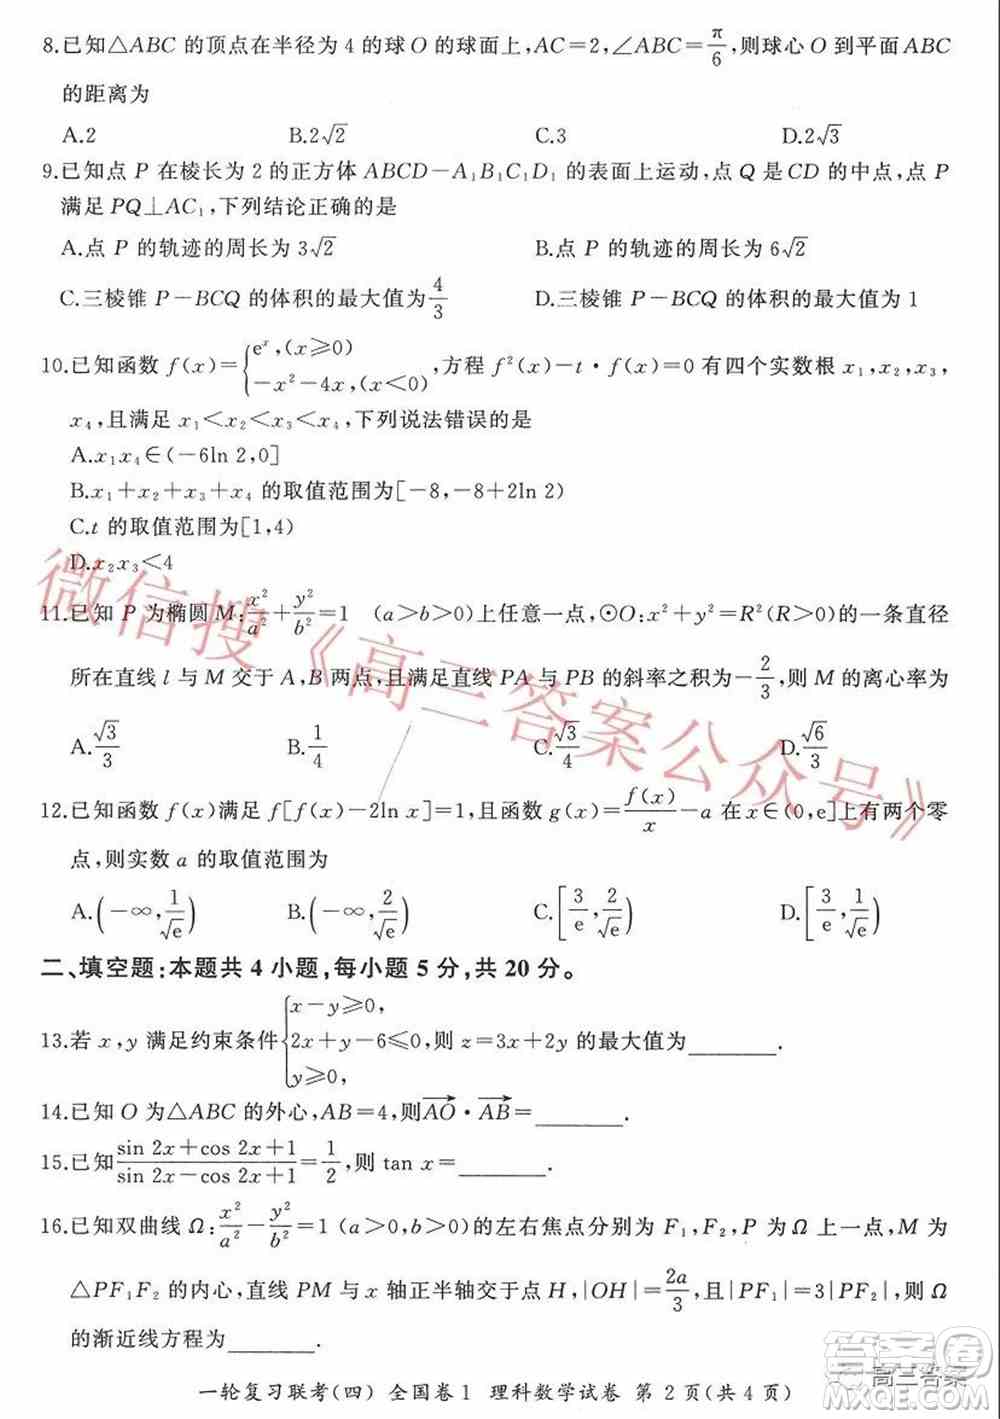 8.已知△ABC 的顶点在半径为 4 的球 O 的球面上,AC=2,∠ABC=π/6,则球心 O 到平面 ABC
的距离为
A.2 B.2√2 C.3 D.2√3
9.已知点 P 在棱长为 2 的正方体 ABCD-A₁B₁C₁D₁ 的表面上运动,点 Q 是 CD 的中点,点 P
满足 PQ⊥AC₁,下列结论正确的是
A.点 P 的轨迹的周长为 3√2 B.点 P 的轨迹的周长为 6√2
C.三棱锥 P-BCQ 的体积的最大值为 4/3 D.三棱锥 P-BCQ 的体积的最大值为 1
10.已知函数 f(x)={eˣ,(x≥0) -x²-4x,(x<0),方程 f²(x)-t·f(x)=0 有四个实数根 x₁,x₂,x₃,
x₄,且满足 x₁<x₂<x₃<x₄,下列说法错误的是
A.x₁x₄∈(-6ln 2,0]
B.x₁+x₂+x₃+x₄ 的取值范围为[-8,-8+2ln 2)
C.t 的取值范围为[1,4)
D.x₂x₃<4
11.已知 P 为椭圆 M:x²/a²+y²/b²=1 (a>b>0)上任意一点,⊙O:x²+y²=R²(R>0)的一条直径
所在直线 l 与 M 交于 A,B 两点,且满足直线 PA 与 PB 的斜率之积为-2/3,则 M 的离心率为
A.√3/3 B.1/4 C.√3/4 D.√6/3
12.已知函数 f(x)满足 f[f(x)-2ln x]=1,且函数 g(x)=f(x)/x-a 在 x∈(0,e]上有两个零
点,则实数 a 的取值范围为
A.(-∞,1/√e) B.(-∞,2/√e) C.[3/e,2/√e) D.[3/e,1/√e)
二、填空题:本题共 4 小题,每小题 5 分,共 20 分。
13.若 x,y 满足约束条件{x-y≥0, 2x+y-6≤0, y≥0,则 z=3x+2y 的最大值为________.
14.已知 O 为△ABC 的外心,AB=4,则AO·AB=________.
15.已知(sin 2x+cos 2x+1)/(sin 2x-cos 2x+1)=1/2,则 tan x=________.
16.已知双曲线 Ω:x²/a²-y²/b²=1(a>0,b>0)的左右焦点分别为 F₁,F₂,P 为 Ω 上一点,M 为
△PF₁F₂ 的内心,直线 PM 与 x 轴正半轴交于点 H,|OH|=2a/3,且|PF₁|=3|PF₂|,则 Ω
的渐近线方程为________.
一轮复习联考(四) 全国卷 1 理科数学试卷 第 2 页(共 4 页)
微信搜《高三答案公众号》
答案圈
MXQE.COM
高三答案